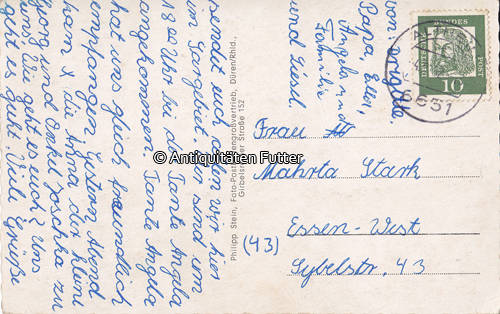 sendet euch allen wir hier
im Saargebiet. Wir sind um
18⁰⁰ Uhr bei der Tante Angela
angekommen. Tante Angela
hat uns auch freundlich
empfangen. Gesteren Abend
kam X die Anna der kleine
Georg und Onkel Joschka zu
uns. Wie geht es euch? Uns
geht es gut. Viele Grüße
von: Dorothe
Papa, Elli,
Angela und
Familie
und Lissl.
Philipp Stein, Foto-Postkartengroßvertrieb, Düren/Rhld.,
Girbelsrather Straße 152
© Antiquitäten Futter
DEUTSCHE BUNDESPOST
10
6631
Frau
Mahrta Stark
Essen-West
(43)
Sybelstr, 43